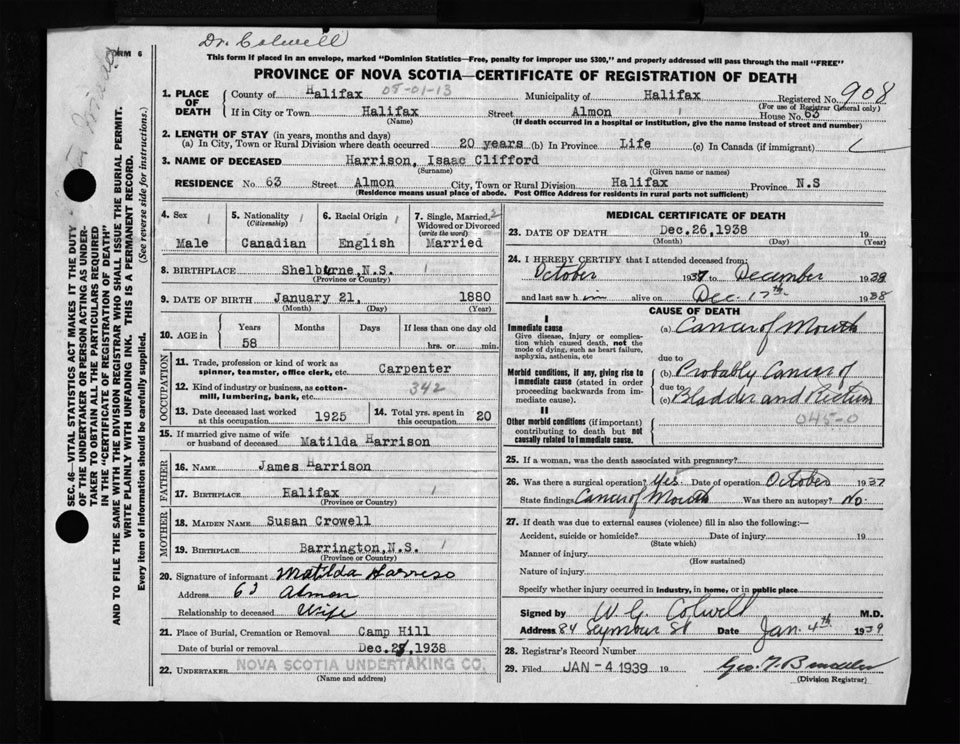 Dr. Colwell
FORM 6
This form if placed in an envelope, marked "Dominion Statistics—Free, penalty for improper use $300," and properly addressed will pass through the mail "FREE"
PROVINCE OF NOVA SCOTIA—CERTIFICATE OF REGISTRATION OF DEATH
1. PLACE OF DEATH
County of Halifax 05-01-13 Municipality of Halifax Registered No. 908
(For use of Registrar General only)
If in City or Town Halifax Street Almon House No. 63
(Name) (If death occurred in a hospital or institution, give the name instead of street and number)
2. LENGTH OF STAY (in years, months and days)
(a) In City, Town or Rural Division where death occurred 20 years (b) In Province Life (c) In Canada (if immigrant)
3. NAME OF DECEASED Harrison, Isaac Clifford
(Surname) (Given name or names)
RESIDENCE No. 63 Street Almon City, Town or Rural Division Halifax Province N.S
(Residence means usual place of abode. Post Office Address for residents in rural parts not sufficient)
4. Sex 1
Male
5. Nationality 1
(Citizenship)
Canadian
6. Racial Origin 1
English
7. Single, Married, 2
Widowed or Divorced
(write the word)
Married
8. BIRTHPLACE Shelburne, N.S. 1
(Province or Country)
9. DATE OF BIRTH January 21, 1880
(Month) (Day) (Year)
10. AGE in
Years Months Days If less than one day old
58 hrs. or min.
OCCUPATION
11. Trade, profession or kind of work as
spinner, teamster, office clerk, etc. Carpenter
12. Kind of industry or business, as cotton-
mill, lumbering, bank, etc. 342
13. Date deceased last worked
at this occupation. 1925
14. Total yrs. spent in
this occupation. 20
15. If married give name of wife
or husband of deceased Matilda Harrison
FATHER
16. NAME James Harrison
17. BIRTHPLACE Halifax 1
(Province or Country)
MOTHER
18. MAIDEN NAME Susan Crowell
19. BIRTHPLACE Barrington, N.S. 1
(Province or Country)
20. Signature of informant Matilda Harriso
Address 63 Almon
Relationship to deceased Wife
21. Place of Burial, Cremation or Removal Camp Hill
Date of burial or removal Dec. 28, 1938
22. UNDERTAKER NOVA SCOTIA UNDERTAKING CO.
(Name and address)
MEDICAL CERTIFICATE OF DEATH
23. DATE OF DEATH Dec. 26, 1938 19
(Month) (Day) (Year)
24. I HEREBY CERTIFY that I attended deceased from:
October 1937 to December 1938
and last saw him alive on Dec. 17th 1938
CAUSE OF DEATH
I
Immediate cause
Give disease, injury or complica-
tion which caused death, not the
mode of dying, such as heart failure,
asphyxia, asthenia, etc
(a) Cancer of Mouth
due to
Morbid conditions, if any, giving rise to
immediate cause (stated in order
proceeding backwards from im-
mediate cause).
(b) Probably Cancer of
due to
(c) Bladder and Rectum
II
Other morbid conditions (if important)
contributing to death but not
causally related to immediate cause.
045-0
25. If a woman, was the death associated with pregnancy?
26. Was there a surgical operation? Yes Date of operation October 1937
State findings Cancer of Mouth Was there an autopsy? No.
27. If death was due to external causes (violence) fill in also the following:—
Accident, suicide or homicide? Date of injury 19
(State which)
Manner of injury
(How sustained)
Nature of injury
Specify whether injury occurred in industry, in home, or in public place
Signed by W. G. Colwell M.D.
Address 84 Seymour St Date Jan. 4th 1939
28. Registrar's Record Number
29. Filed JAN - 4 1939 19
(Division Registrar)
SEC. 46—VITAL STATISTICS ACT MAKES IT THE DUTY
OF THE UNDERTAKER OR PERSON ACTING AS UNDER-
TAKER TO OBTAIN ALL THE PARTICULARS REQUIRED
IN THE "CERTIFICATE OF REGISTRATION OF DEATH"
AND TO FILE THE SAME WITH THE DIVISION REGISTRAR WHO SHALL ISSUE THE BURIAL PERMIT.
WRITE PLAINLY WITH UNFADING INK. THIS IS A PERMANENT RECORD.
Every item of information should be carefully supplied. (See reverse side for instructions.)